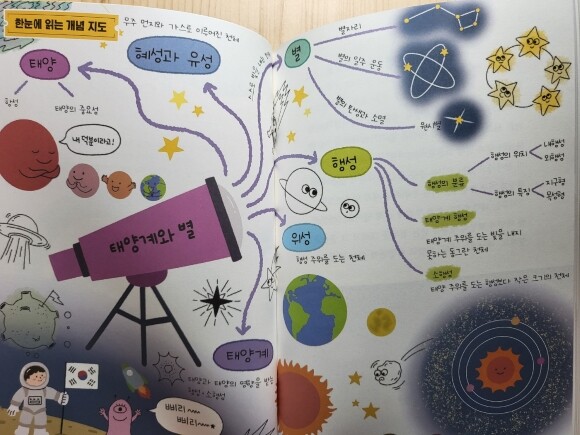 한눈에 읽는 개념 지도
우주 먼지와 가스로 이루어진 천체
태양
항성
태양의 중요성
내 덕분이라고!
혜성과 유성
스스로 빛을 내는 천체
별
별자리
별의 일주 운동
별의 탄생과 소멸
원시별
행성
행성의 분류
행성의 위치
내행성
외행성
행성의 특징
지구형
목성형
태양계 행성
태양계 주위를 도는 빛을 내지
못하는 둥그란 천체
소행성
태양 주위를 도는 행성보다 작은 크기의 천체
위성
행성 주위를 도는 천체
태양계와 별
태양계
태양과 태양의 영향을 받는
행성·소행성
삐리~~
삐리~~